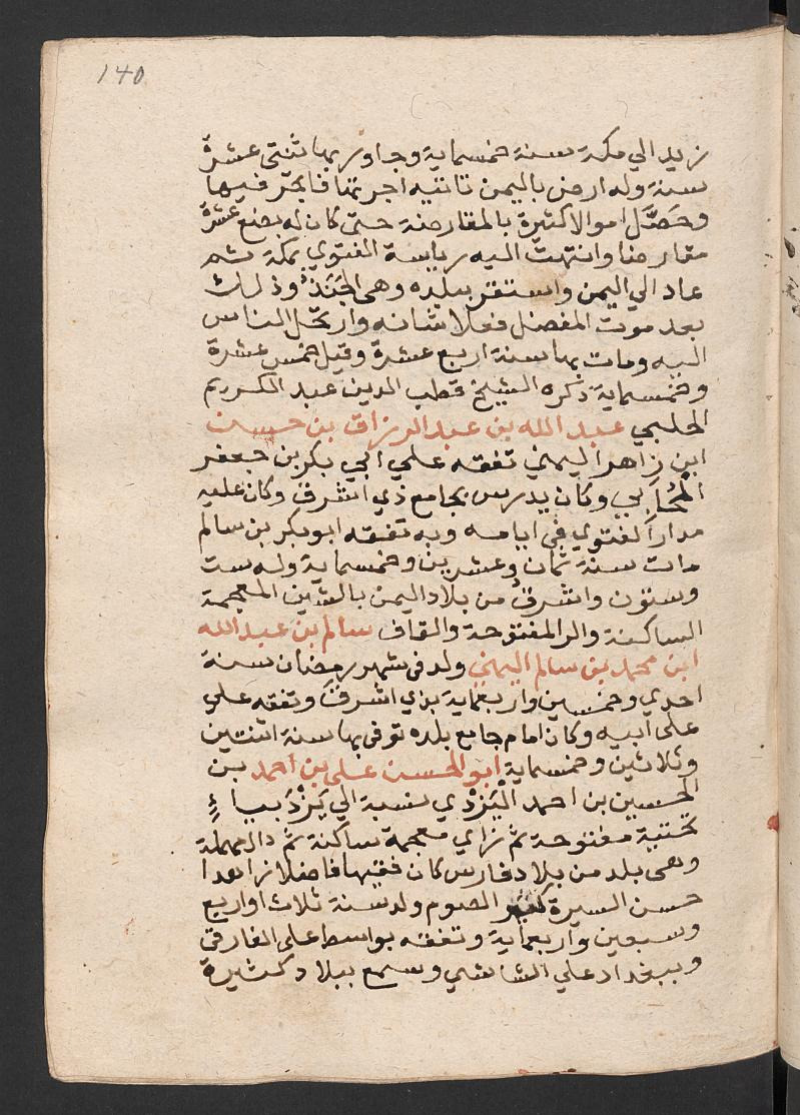 140
زيد الي مكة سنة خمسماية وجاور بها ثنتى عشرة
سنة وله ارض باليمن تاتيه اجرتها فاتجر فيها
وحَصَّل اموالا كثيرة بالمقارضة حتى كان له بضع عشرة
مقارضا وانتهت اليه رياسة الفتوي بمكة ثم
عاد الي اليمن واستقر ببلده وهي الجَنَدُ وذلك
بعد موت المفضل فعلا شانه وارتحل الناس
اليه ومات بها سنة اربع عشرة وقيل خمس عشرة
وخمسماية ذكره الشيخ قطب الدين عبد الكريم
الحلبي عبد الله بن عبد الرزاق بن حسن
ابن زاهر اليمني تفقه علي ابي بكر بن جعفر
المُحَابي وكان يدرس بجامع ذي اشرق وكان عليه
مداراً لفتوي في ايامه وبه تفقه ابو بكر بن سالم
مات سنة ثمان وعشرين وخمسماية وله ست
وستون واشرقُ من بلاد اليمن بالشين المعجمة
الساكنة والرا المفتوحة والقاف سالم بن عبد الله
ابن محمد بن سالم اليمني ولد في شهر رمضان سنة
احدي وخمسين واربعماية بذي اشرق وتفقه علي
على ابيه وكان امام جامع بلده توفى بها سنة اثنتين
وثلاثين وخمسماية ابو الحسن على بن احمد بن
الحسين بن احمد اليَزْدي نسبة الي يَزْدَ بياءٍ
تحتية مفتوحة ثم زاي معجمة ساكنة ثم دال مهملة
وهي بلد من بلاد فارس كان فقيها فاضلا زاهدا
حسن السيرة كثير الصوم ولد سنة ثلاث او اربع
وسبعين واربعماية وتفقه بواسط على الفارقى
وببغداد علي الشاشي وسمع ببلاد كثيرة